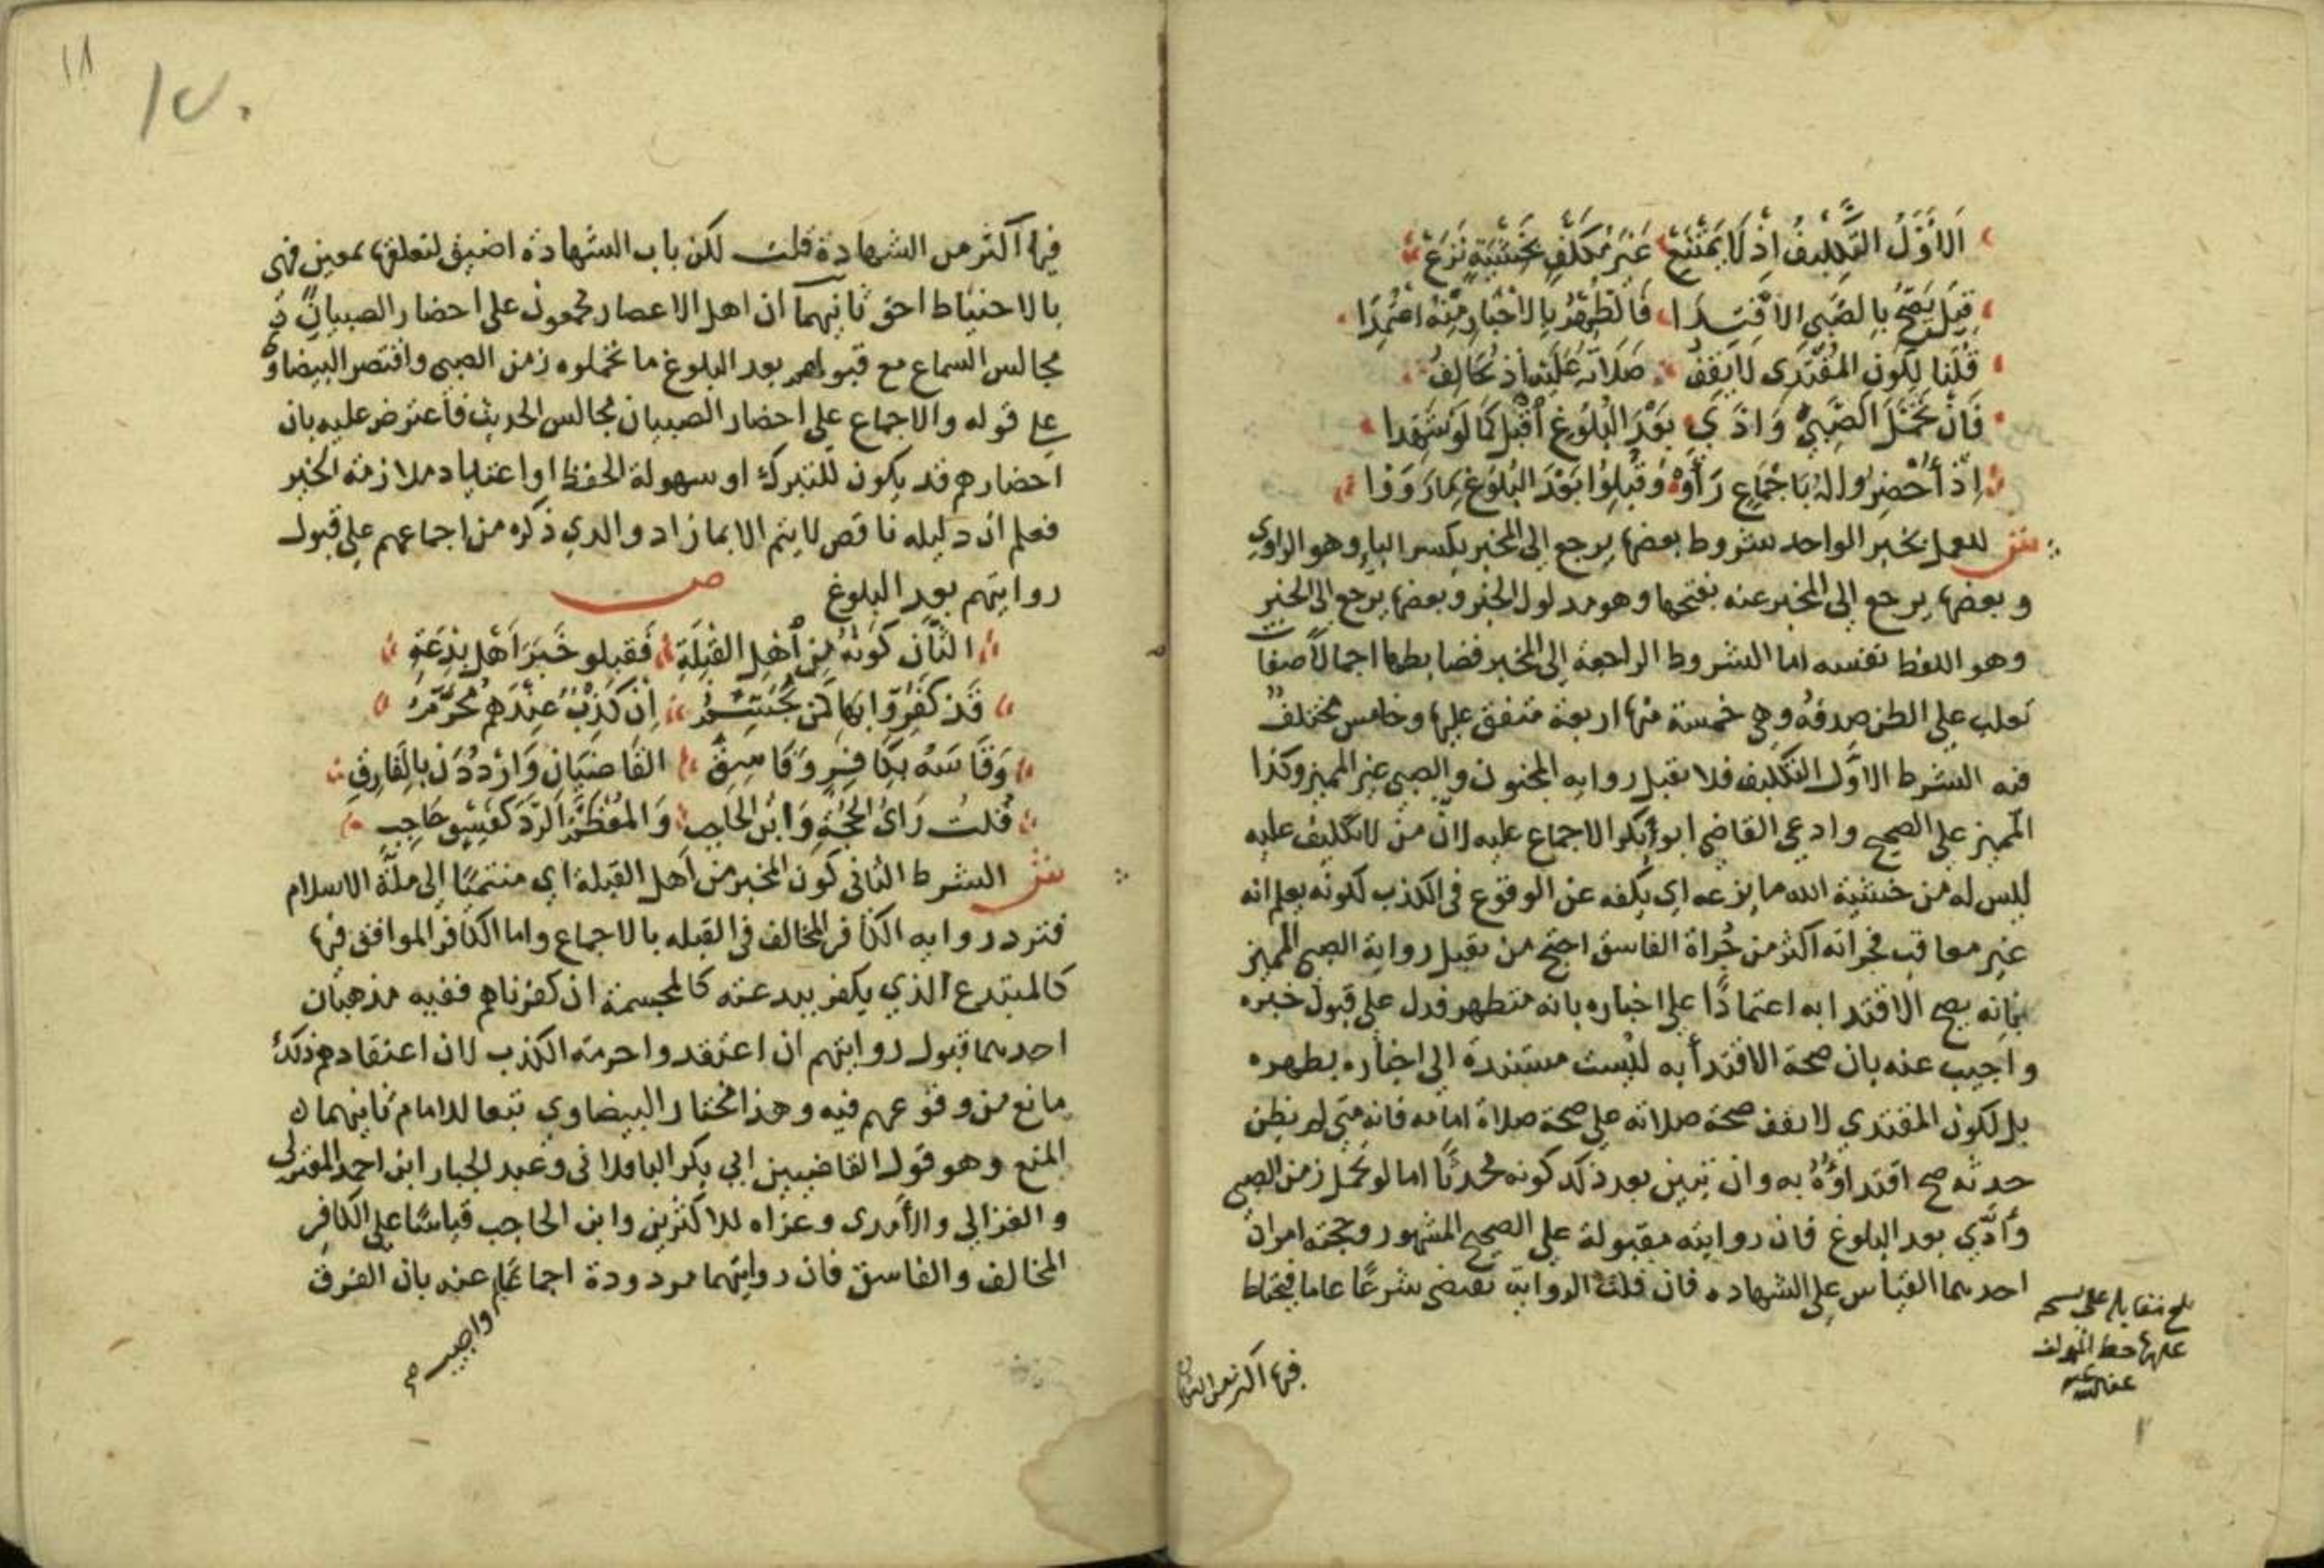 الأَوَّلُ التَّكْلِيفُ اِذْ لَا يَمْتَنِعْ غَيْرُ مُكَلَّفٍ بِخَشْيَةٍ تَزَعْ
قِيلَ يَصِحُّ بِالصَّبِيِ الاقْتِدَا فَالطُّهْرُ بِالاخْبَارِ مِنْهُ اعْتُمِدَا
قُلْنَا لِكَوْنِ المُقْتَدِى لَا يَقِفُ صَلَاتُهُ عَلَيْهِ اِذْ تُخَالِفُ
فَاِنْ تَحَمَّلَ الصَّبِيُّ وَادَّيَ بَعْدَ البُلُوغِ اُقْبِلْ كَمَا لَوْ شَهِدَا
اِذْ أُحْضِرُوا لَهُ بِاجْمَاعٍ رَأَوْهْ وَقُبِلُوا بَعْدَ البُلُوغِ بِمَا رَوَوْا
ش للعمل بخبر الواحد شروط بعضها يرجع إلى المخبر بكسر الباء وهو الراوي
وبعضها يرجع إلى المخبر عنه بفتحها وهو مدلول الخبر وبعضها يرجع إلى الخبر
وهو اللفظ نفسه اما الشروط الراجعة إلى المخبر فضابطها اجمالًا صفات
تغلب على الظن صدقه وهي خمسة منها اربعة متفق عليها وخامس مختلف
فيه الشرط الاوّل التكليف فلا تقبل رواية المجنون والصبي غير المميز وكذا
المميز على الصحيح وادعى القاضي ابو بكر الاجماع عليه لانّ من لا تكليف عليه
ليس له من خشية الله ما يزعه اي يكفه عن الوقوع في الكذب لكونه يعلم انه
غير معاقب فجراته اكثر من جُراة الفاسق احتج من تقبل رواية الصبي المميز
بانه يصح الاقتدا به اعتمادًا على اخباره بانه متطهر فدل على قبول خبره
واجيب عنه بان صحة الاقتدأ به ليست مستندة إلى اخباره بطهره
بل لكون المقتدي لا تقف صحة صلاته على صحة صلاة امامه فانه متى لم يظن
حدثه صح اقتداؤهُ به وان تبين بعد ذلك كونه محدثًا اما لو تحمل زمن الصبي
وأدّي بعد البلوغ فان روايته مقبولة على الصحيح المشهور وحجته امران
احدهما القياس على الشهاده فان قلت الرواية تقتضى شرعًا عاما فيحتاط
بلغ مقابلة على نسخة
عليها خط المؤلف
عفا الله عنه
فيها اكثر من الشهادة
١٨
١٢٠
فيها اكثر من الشهادة قلت لكن باب الشهادة اضيق لتعلقها بمعين فهى
بالاحتياط احق ثانيهما ان اهل الاعصار مجمعون على احضار الصبيان في
مجالس السماع مع قبولهم بعد البلوغ ما تحملوه زمن الصبي واقتصر البيضاوي
على قوله والاجماع على احضار الصبيان مجالس الحديث فاعترض عليه بان
احضارهم قد يكون للتبرك او سهولة الحفظ او اعتياد ملازمة الخير
فعلم ان دليله ناقص لا يتم الا بما زاد والدي ذكره من اجماعهم على قبول
روايتهم بعد البلوغ ص
الثَّانِ كَوْنُهُ مِنْ أَهْلِ القِبْلَةِ فَقَبِلُو خَبَرَ اَهْلِ بِدْعَةِ
قَدْ كَفَرُوا بِهَا كَمَنْ يُجَسِّمُ اِنْ كَذِبٌ عِنْدَهُمُ مُحَرَّمُ
وَقَاسَهُ بِكَافِرٍ وَفَاسِقِ القَاضِيَانِ وَارْدُدَنْ بِالفَارِقِ
قُلْتُ رَايُ الحُجَّةِ وَابْنِ الحَاجِبِ وَالمُعْظَمُ الرَّدَّ كَفِسْقٍ حَاجِبِ
ش الشرط الثانى كون المخبر من أهل القبلة اي منتميًا إلى ملّة الاسلام
فترد رواية الكافر المخالف في القبله بالاجماع واما الكافر الموافق فيها
كالمبتدع الذي يكفر ببدعته كالمجسمة ان كفرناهم ففيه مذهبان
احدهما قبول روايتهم ان اعتقدوا حرمة الكذب لان اعتقادهم ذلك
مانع من وقوعهم فيه وهذا مختار البيضاوي تبعا للامام ثانيهما
المنع وهو قول القاضيين ابي بكر الباقلانى وعبد الجبار ابن احمد المعتزلى
والغزالي والأمدى وعزاه للاكثرين وابن الحاجب قياسًا على الكافر
المخالف والفاسق فان روايتهما مردودة اجماعا عنه بان الفرق
واجيب صح